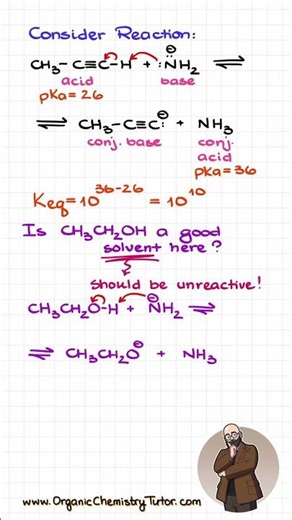 Consider Reaction:
CH₃-C≡C-H + :N̈H₂ ⊖ ⇌
acid base
pKa=26
⇌ CH₃-C≡C:⊖ + NH₃
conj. base conj. acid
pKa=36
Keq=10³⁶⁻²⁶ = 10¹⁰
Is CH₃CH₂OH a good
solvent here?
should be unreactive!
CH₃CH₂O-H + N̈H₂ ⊖ ⇌
⇌ CH₃CH₂O⊖ + NH₃
www.OrganicChemistryTutor.com